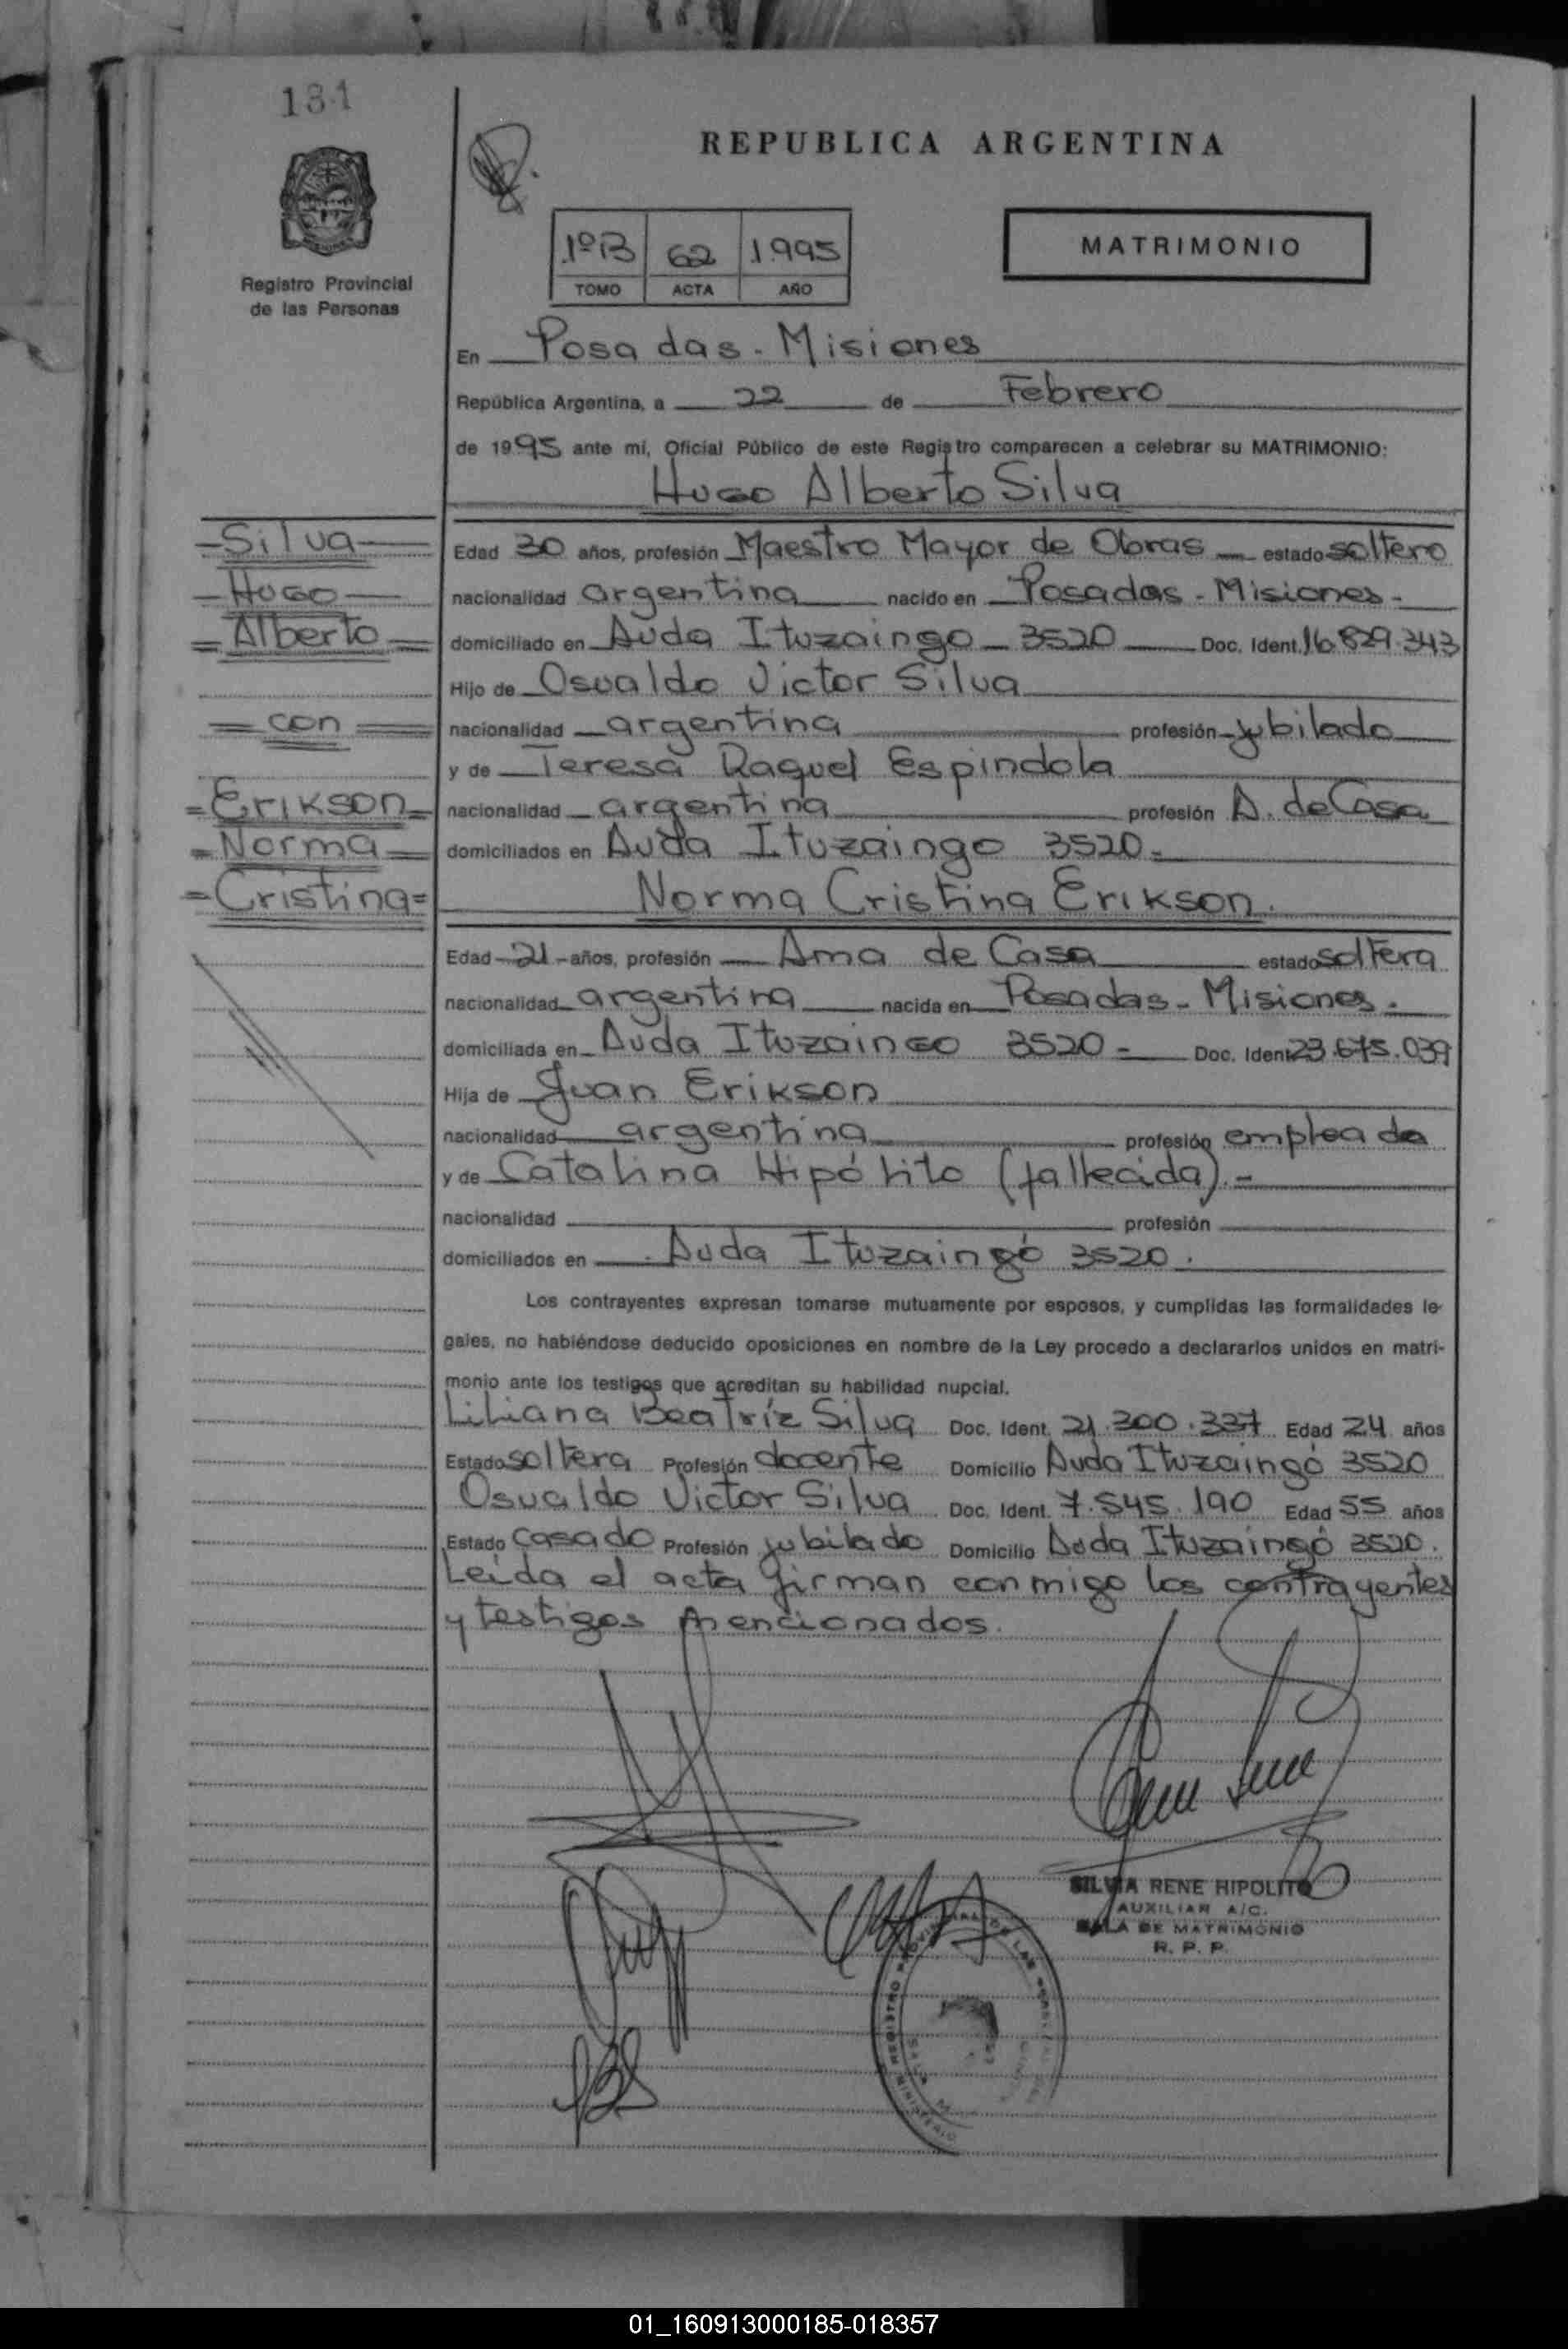 181
REPUBLICA ARGENTINA
Registro Provincial
de las Personas
1ºB 62 1.995
TOMO ACTA AÑO
MATRIMONIO
En Posadas - Misiones
República Argentina, a 22 de Febrero
de 1995 ante mi, Oficial Público de este Registro comparecen a celebrar su MATRIMONIO:
Hugo Alberto Silva
Silva
Hugo
Alberto
con
Erikson
Norma
Cristina
Edad 30 años, profesión Maestro Mayor de Obras estado soltero
nacionalidad argentina nacido en Posadas - Misiones -
domiciliado en Avda Ituzaingo - 3520 Doc. Ident. 16.829.343
Hijo de Osvaldo Victor Silva
nacionalidad argentina profesión jubilado
y de Teresa Raquel Espindola
nacionalidad argentina profesión A. de Casa
domiciliados en Avda Ituzaingo 3520 -
Norma Cristina Erikson.
Edad 21 años, profesión Ama de Casa estado soltera
nacionalidad argentina nacida en Posadas - Misiones -
domiciliada en Avda Ituzaingo 3520 - Doc. Ident. 23.675.039
Hija de Juan Erikson
nacionalidad argentina profesión empleado
y de Catalina Hipólito (fallecida). -
nacionalidad profesión
domiciliados en Avda Ituzaingó 3520.
Los contrayentes expresan tomarse mutuamente por esposos, y cumplidas las formalidades le-
gales, no habiéndose deducido oposiciones en nombre de la Ley procedo a declararlos unidos en matri-
monio ante los testigos que acreditan su habilidad nupcial.
Liliana Beatríz Silva Doc. Ident. 21.300.337 Edad 24 años
Estado soltera Profesión docente Domicilio Avda Ituzaingó 3520
Osvaldo Victor Silva Doc. Ident. 7.545.190 Edad 55 años
Estado casado Profesión jubilado Domicilio Avda Ituzaingó 3520.
Leída el acta firman conmigo los contrayentes
y testigos mencionados.
SILVIA RENE HIPOLITO
AUXILIAR A/C.
SALA DE MATRIMONIO
R. P. P.
01_160913000185-018357